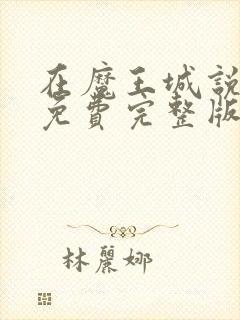 在魔王城說
免費完整版
林麗娜